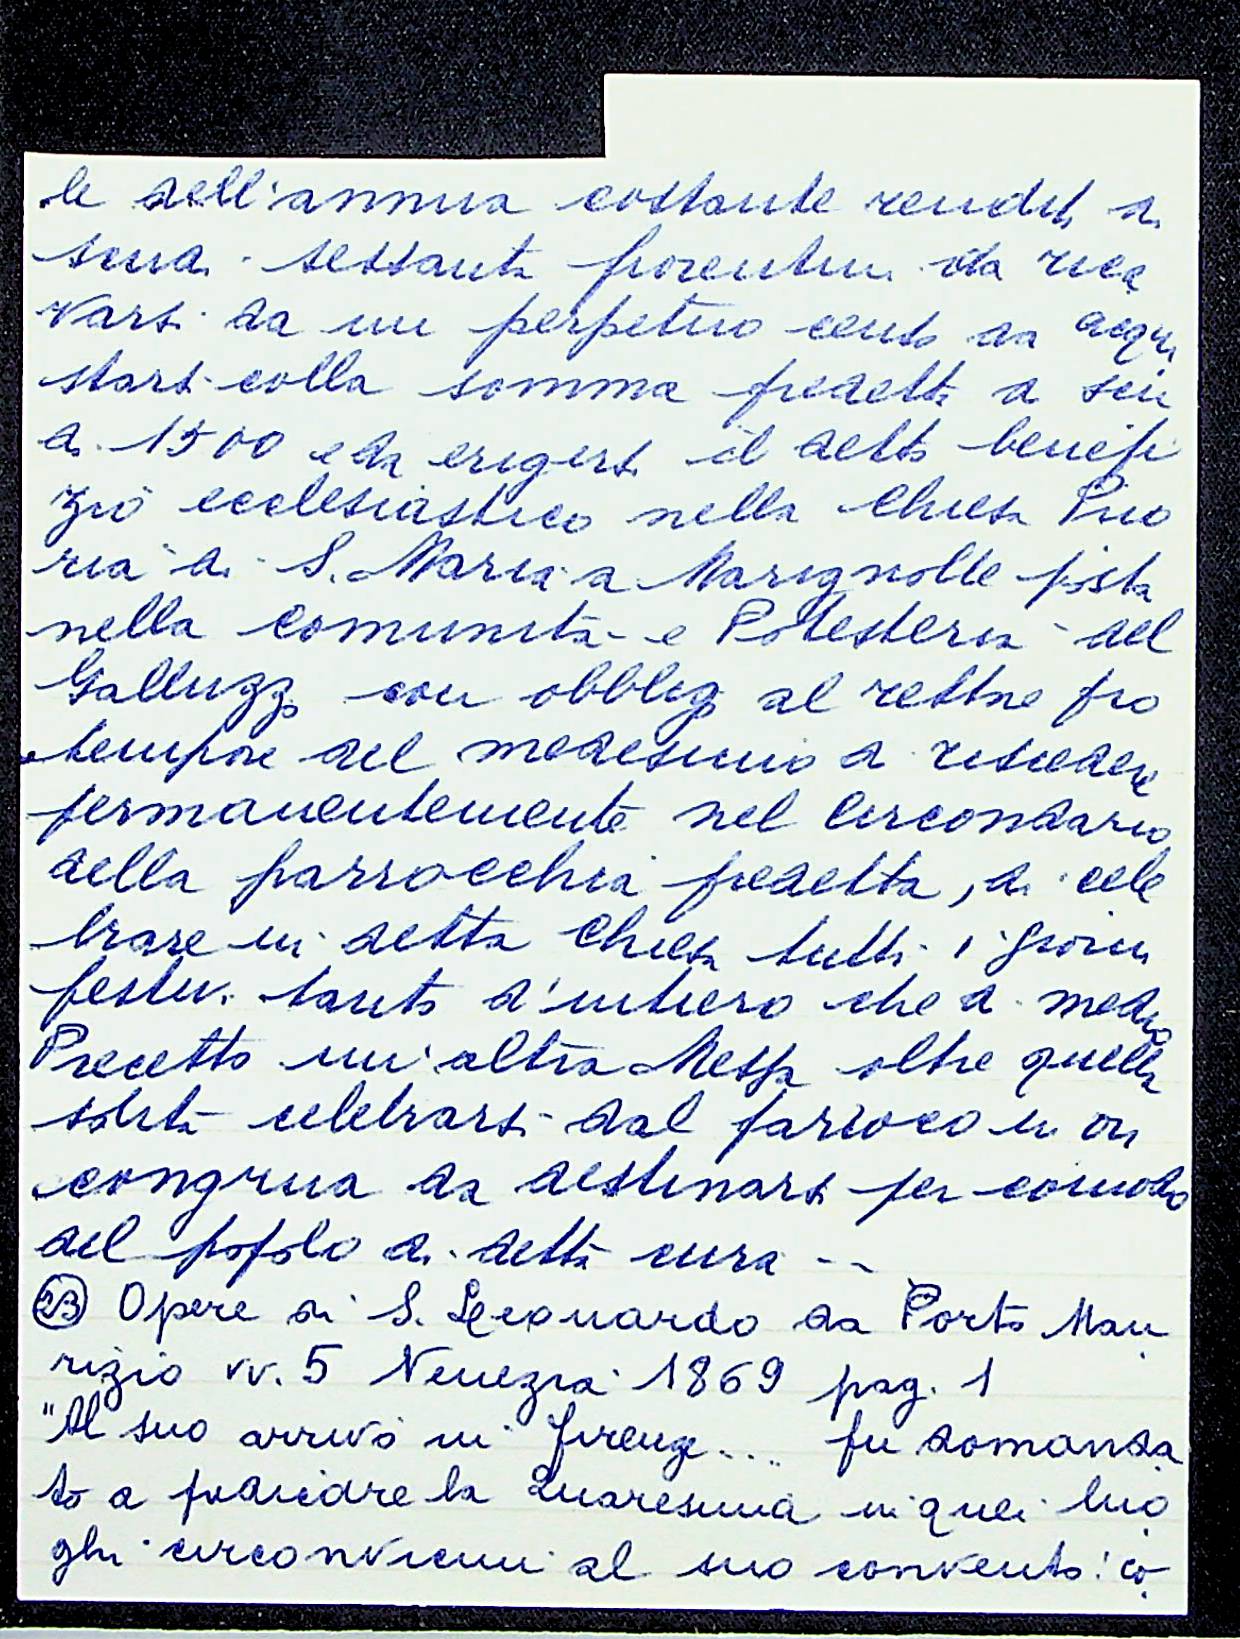 le dell'annua costante rendita di
scudi sessanta fiorentini da rica
varsi da un perpetuo censo da acqui
starsi colla somma predetta di scu
di 1500 e da erigersi il detto benefi
zio ecclesiastico nella Chiesa Prio
ria di S. Maria a Marignolle posta
nella comunità e Potesteria del
Galluzzo con obbligo al rettore pro
tempore del medesimo di risiedere
permanentemente nel circondario
della parrocchia predetta, di cele
brare in detta Chiesa tutti i giorni
festivi tanto d'intiero che di mezzo
Precetto un'altra Messa oltre quella
solita celebrarsi dal parroco in ora
congrua da destinarsi per comodo
del popolo di detta cura --
23 Opere di S. Leonardo da Porto Mau
rizio vv. 5 Venezia 1869 pag. 1
"Al suo arrivo in Firenze... fu domanda
to a predicare la Quaresima in quei luo
ghi circonvicini al suo convento: co